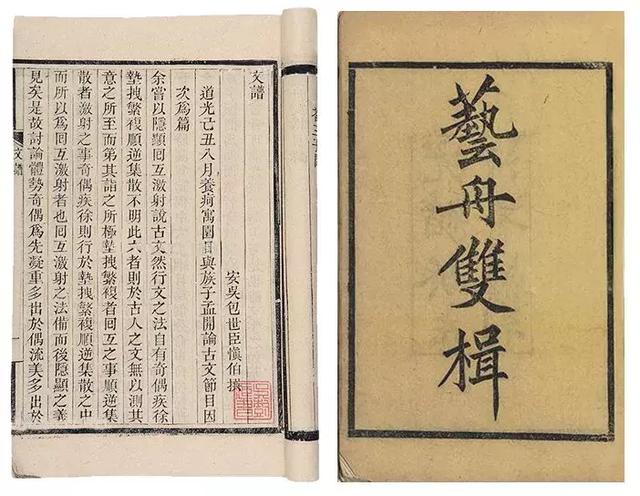 藝舟雙楫
文譜
安吳包世臣慎伯撰
道光己丑八月養疴寓園日與族子孟開論古文節目因
次為篇
余嘗以隱顯回互激射說古文然行文之法自有奇偶疾徐
墊拽繁複順逆集散不明此六者則於古人之文無以測其
意之所至而第其詣之所極墊拽繁複者回互之事順逆集
散者激射之事奇偶疾徐則行於墊拽繁複順逆集散之中
而所以為回互激射者也回互激射之法備而後隱顯之義
見矣是故討論體勢奇偶為先凝重多出於偶流美多出於
文譜
一